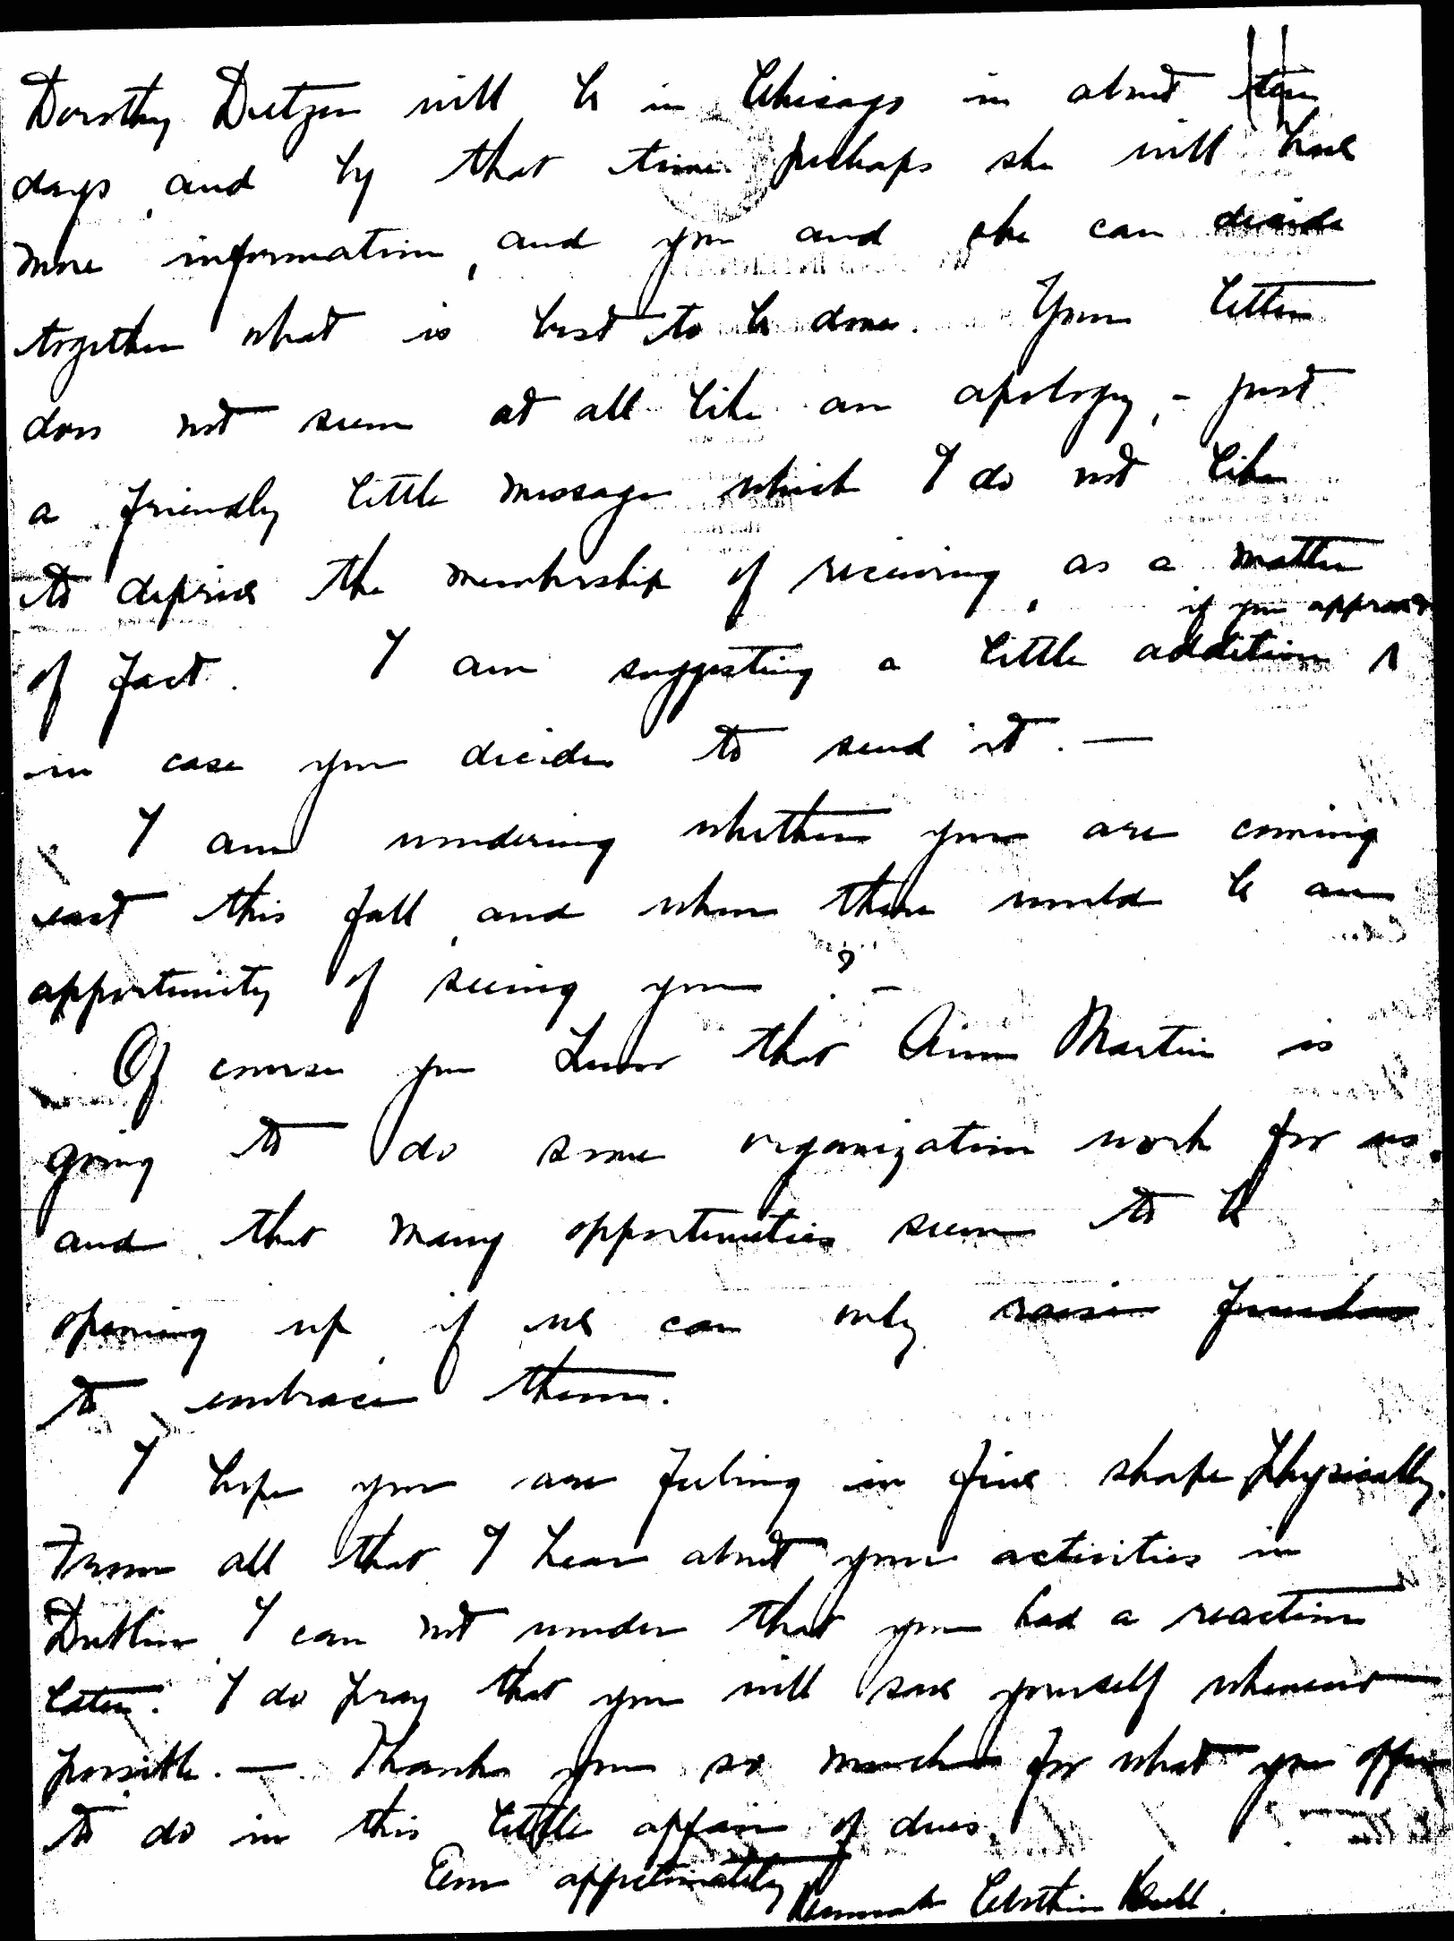 Dorothy Detzer will be in Chicago in about ten
days, and by that time perhaps she will have
more information, and you and she can decide
together what is best to be done. Your letter
does not seem at all like an apology, - just
a friendly little message which I do not like
to deprive the membership of receiving, as a matter
if you approve
of fact. I am suggesting a little addition ^
in case you decide to send it. —
I am wondering whether you are coming
east this fall, and when there would be an
opportunity of seeing you? -
Of course you know that Martin is
going to do some organization work for us.
and that many opportunities seem to be
opening up if we can only raise funds
to embrace them.
I hope you are feeling in fine shape physically.
From all that I hear about your activities in
Dublin, I can not wonder that you had a reaction
later. I do pray that you will save yourself whenever
possible. — Thank you so much for what you offer
to do in this little affair of dues.
Ever appreciatively
Hannah Clothier Hull.